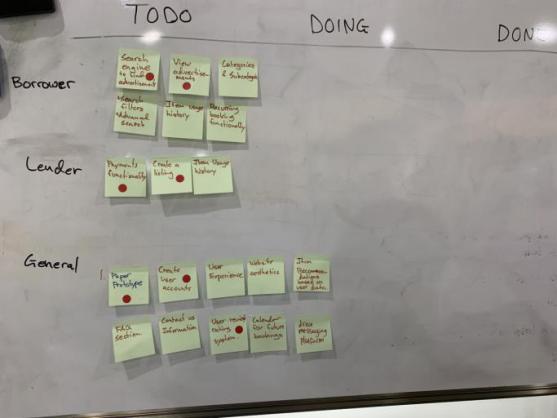 TODO
DOING
DON
Borrower
Search
engine
to find
advertisements
View
advertise-
ments
Categories
& Subcategories
Search
filters
Advanced
search
Item usage
history
Recurring
booking
functionality
Lender
Payments
functionality
Create a
listing
Item Usage
history
General
Paper
Prototype
Create
user
accounts
User
Experience
Website
aesthetics
Item
Recommen-
dations
based on
user data
FAQ
section
Contact us
Information
User
rating
system
Calendar
for future
bookings
messaging
platform